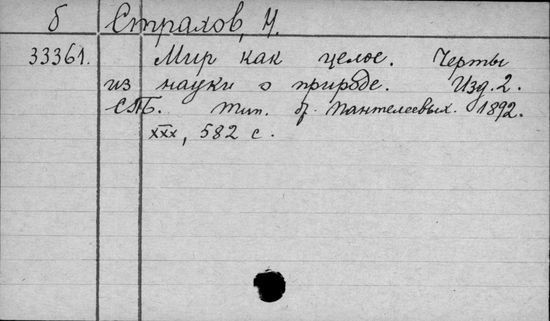 б Страхов, Н.
33361. Мир как целое. Черты
из науки о природе. Изд. 2.
СПБ. тип. бр. Пантелеевых. 1892.
XXX, 582 с.